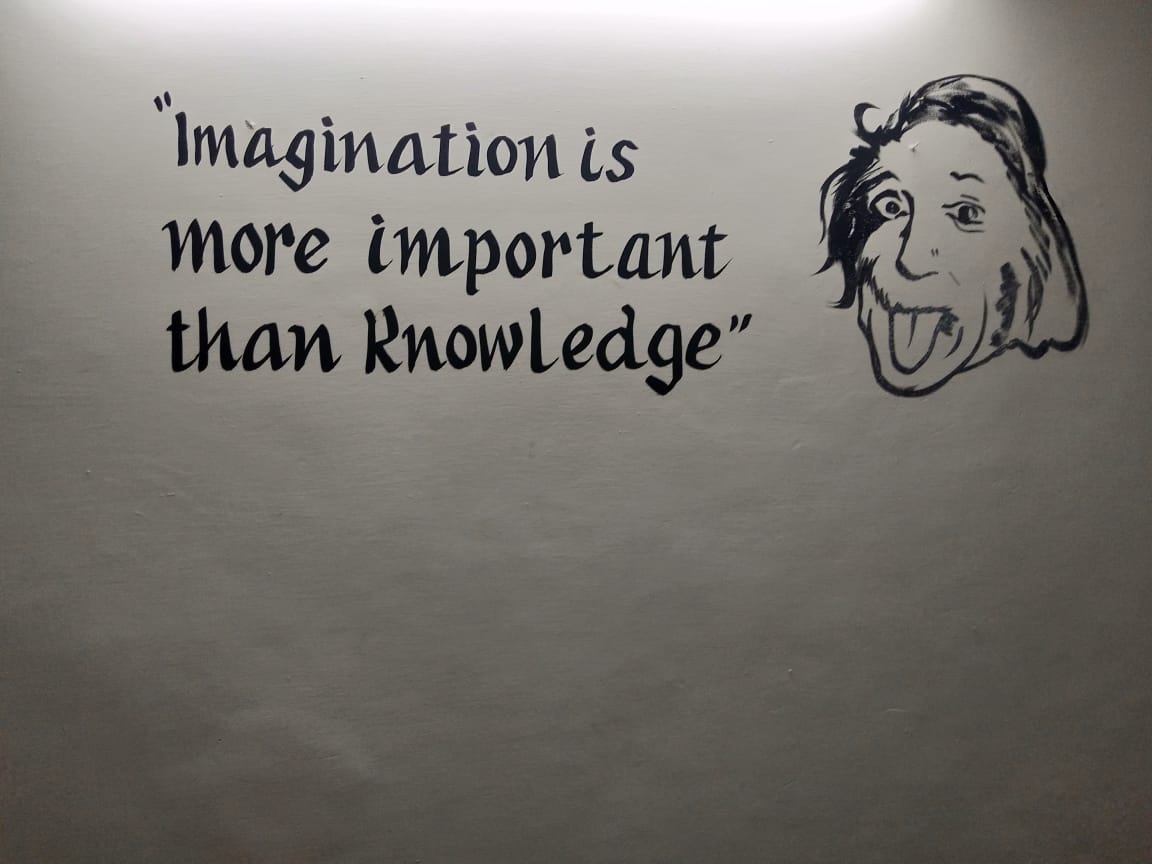 "Imagination is
more important
than Knowledge"